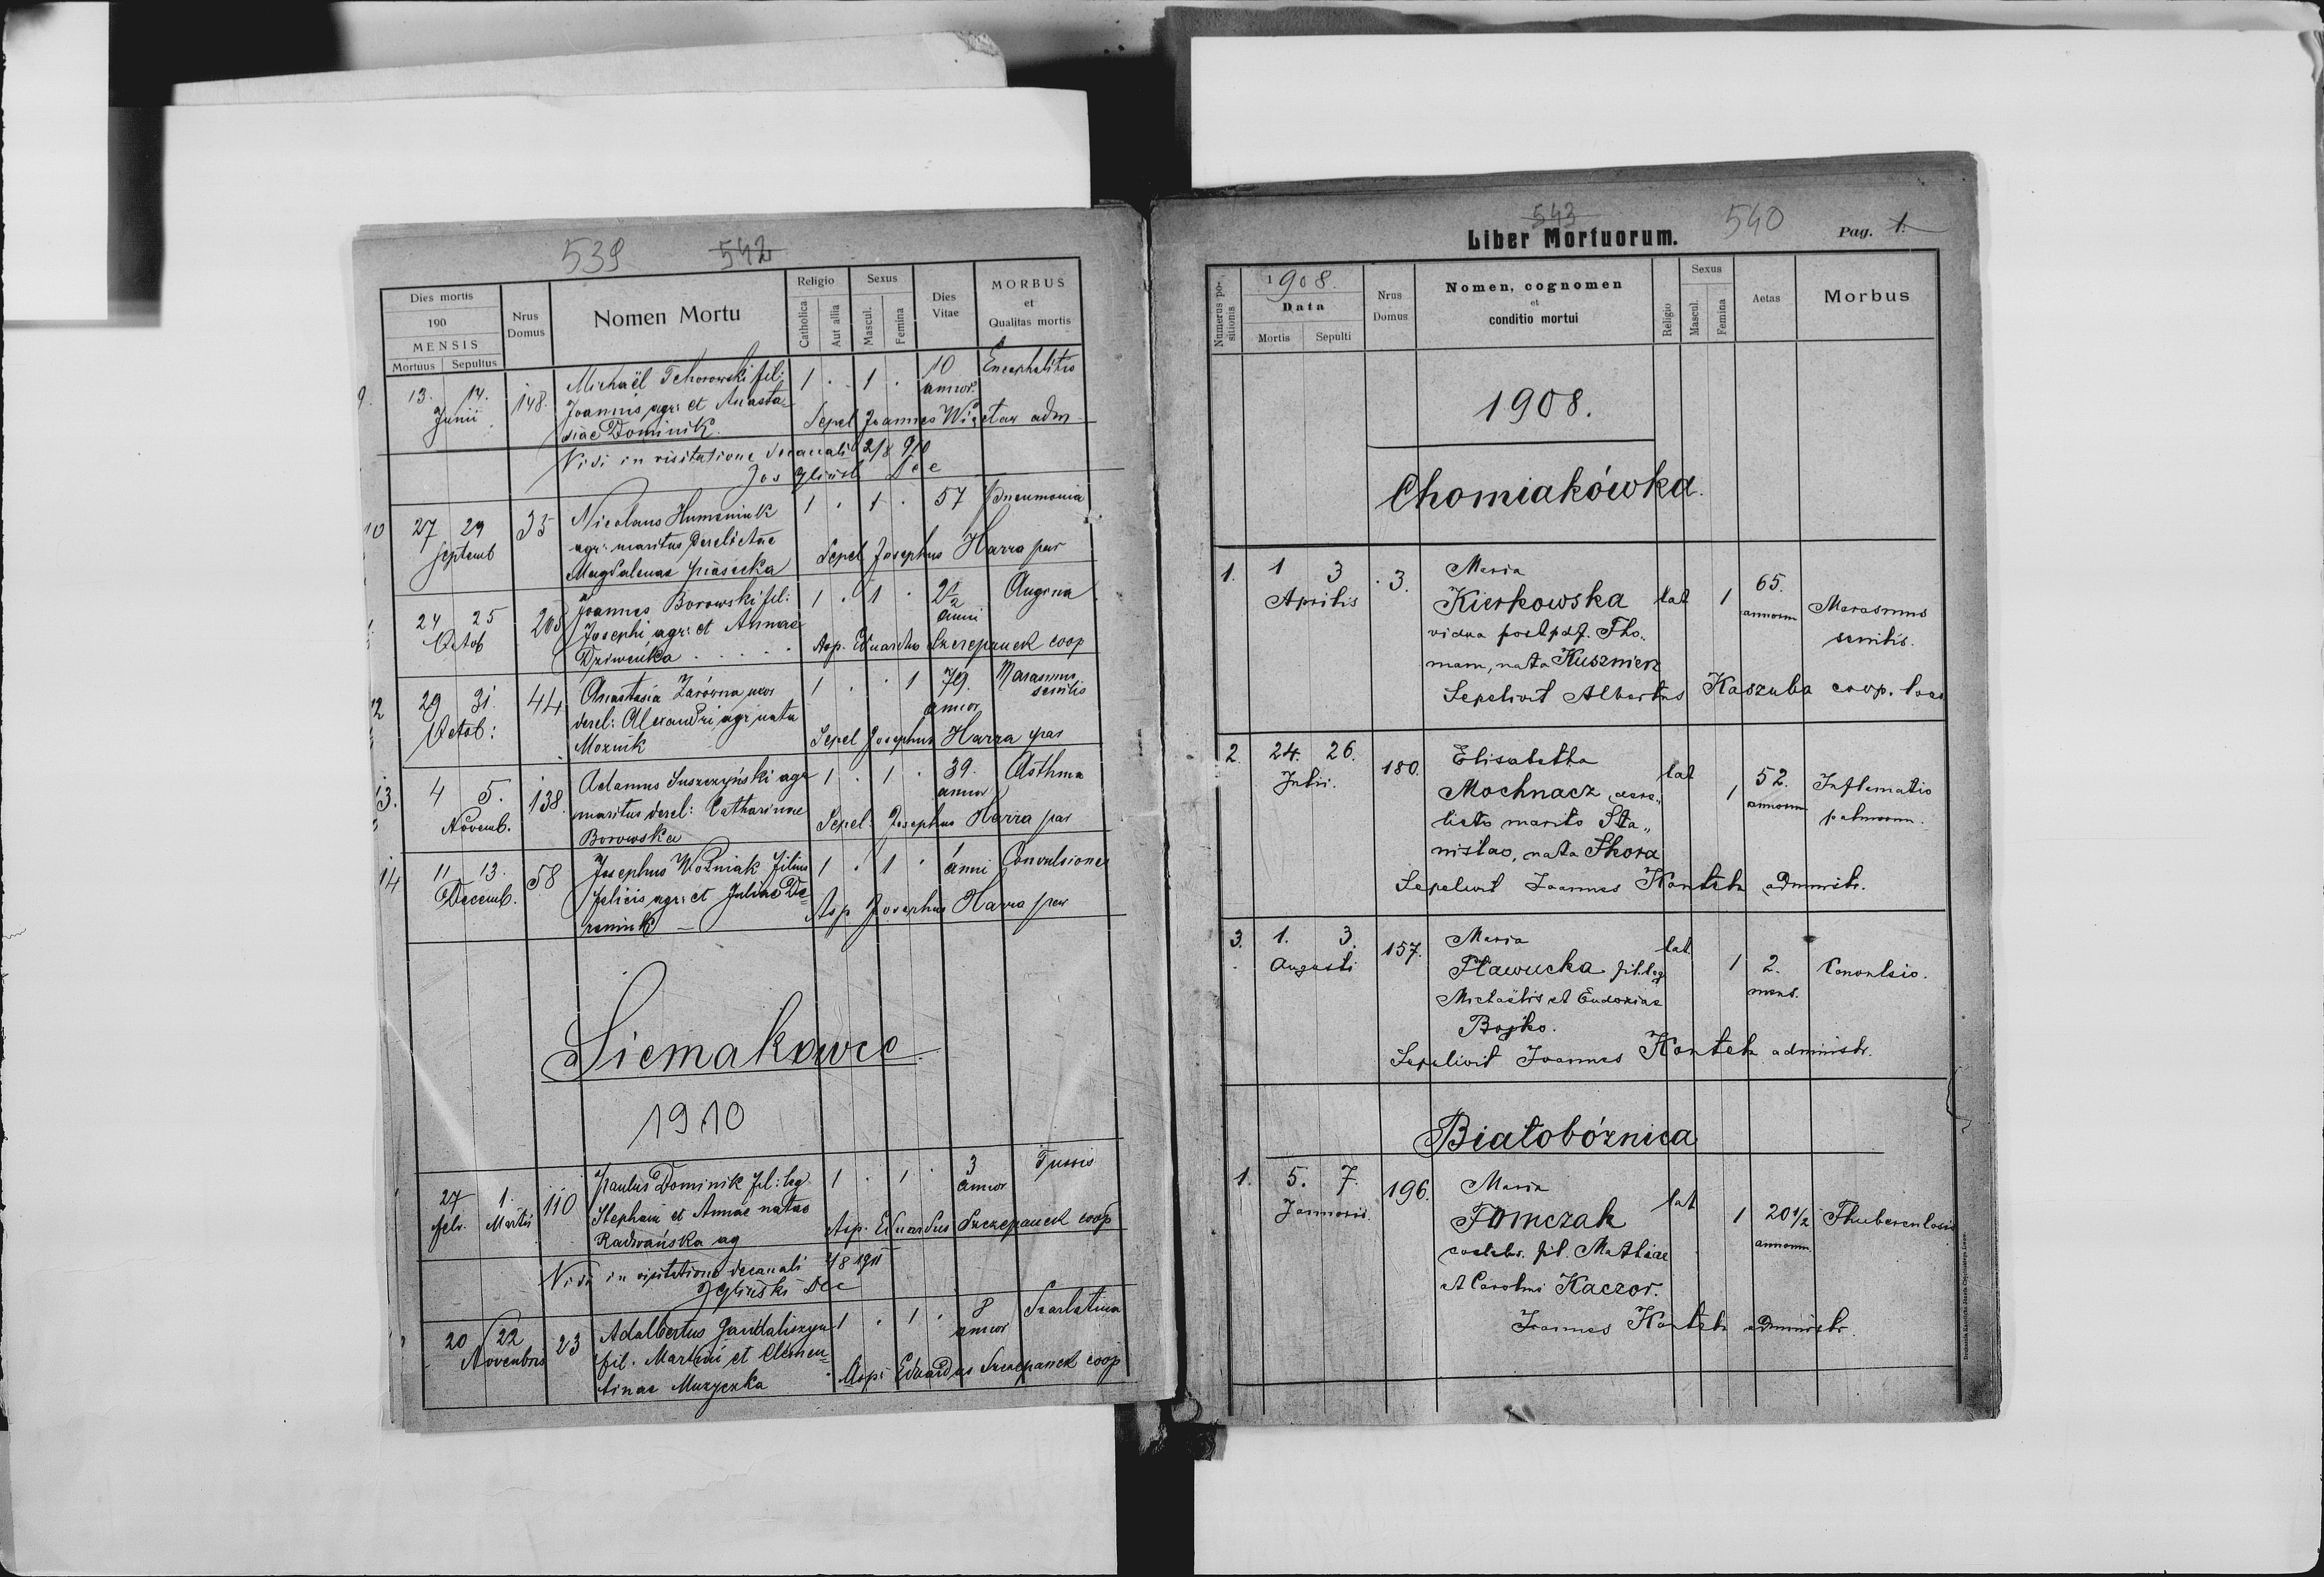 539 542
Dies mortis
190
MENSIS
Mortuus Sepultus
Nrus Domus
Nomen Mortu
Religio
Catholica Aut allia
Sexus
Mascul. Femina
Dies Vitae
MORBUS
et
Qualitas mortis
9. 13. 14. 148. Michaël Tchorowski fil: 1 . 1 . 10 Encephalitis
Junii Joannis agr: et Anasta= annor.
siae Dominik. Sepel Joannes Wiẹtar adm
Vidi in visitatione decanali 2/8 910
Jos Gliński Dec
10 27 29 35 Nicolaus Humeniuk 1 . 1 . 57 Pneumonia
Septemb agr: maritus derelictae
Magdalenae Piasecka Sepel Josephus Harra par
24 25 205 Joannes Borowski fil: 1 . 1 . 2 1/2 Angina
Octob Josephi agr: et Annae anni
Dziwenka . . . . . Asp. Eduardus Szczepanek coop
12 29 31. 44 Anastasia Żarówna uxor 1 . . 1 79. Marasmus
senilis
Octob: derel: Alexandri agr nata annor
Moznik Sepel Josephus Harra par
13. 4 5. 138. Adamus Suszczyński agr 1 . 1 . 39. Asthma
Novemb. maritus derel: Catharinae annor
Borowska Sepel: Josephus Harra par
14 11 13. 58 Josephus Woźniak filius 1 . 1 . anni Convulsiones
Decemb. Felicis agr: et Juliae De=
reniuk — Asp Josephus Harra par
Siemakowce
1910
27 1. 110 Paulus Dominik fil: leg 1 . 1 . 3 Tussis
febr. Martii Stephani et Annae natae annor
Radwańska ag Asp. Eduardus Szczepanek coop
Vidi in visitatione decanali 4/8 1911
Gliński Dec
20 22 23 Adalbertus 1 . 1 . 8 Scarlatina
Novembris fil. Martini et Clemen= annor
tinae Muzyczka Asp: Eduardus Szczepanek coop
543 540
Liber Mortuorum. Pag. 1.
Numerus po-sitionis
1908.
Data
Mortis Sepulti
Nrus Domus
Nomen, cognomen
et
conditio mortui
Religio
Sexus
Mascul. Femina
Aetas
Morbus
1908.
Chomiakówka.
1. 1 3 3. Maria
Aprilis Kierkowska lat 1 65. annorum Marasmus
vidua post pdf. Tho- senilis.
mam, nata Kusznierz
Sepelivit Albertus Kaszuba coop. loci
2. 24. 26. 180. Elisabetha
Julii. Mochnacz dere„ lat 1 52. annorum Inflamatio
licto marito Sta„ pulmonum.
nislao, nata Skora
Sepelivit Joannes Kontek administr.
3. 1. 3. 157. Maria
Augusti Pławucka fil. leg lat 1 2. mens. Convulsio.
Michaëlis et Eudoxiae
Bojko.
Sepelivit Joannes Kontek administr.
Białobóżnica
1. 5. 7. 196. Maria
Januarii. Tomczak lat 1 20 1/2 annorum Thuberculosis
coelebs. fil. Mathiae
et Carolinae Kaczor.
Joannes Kontek administr.